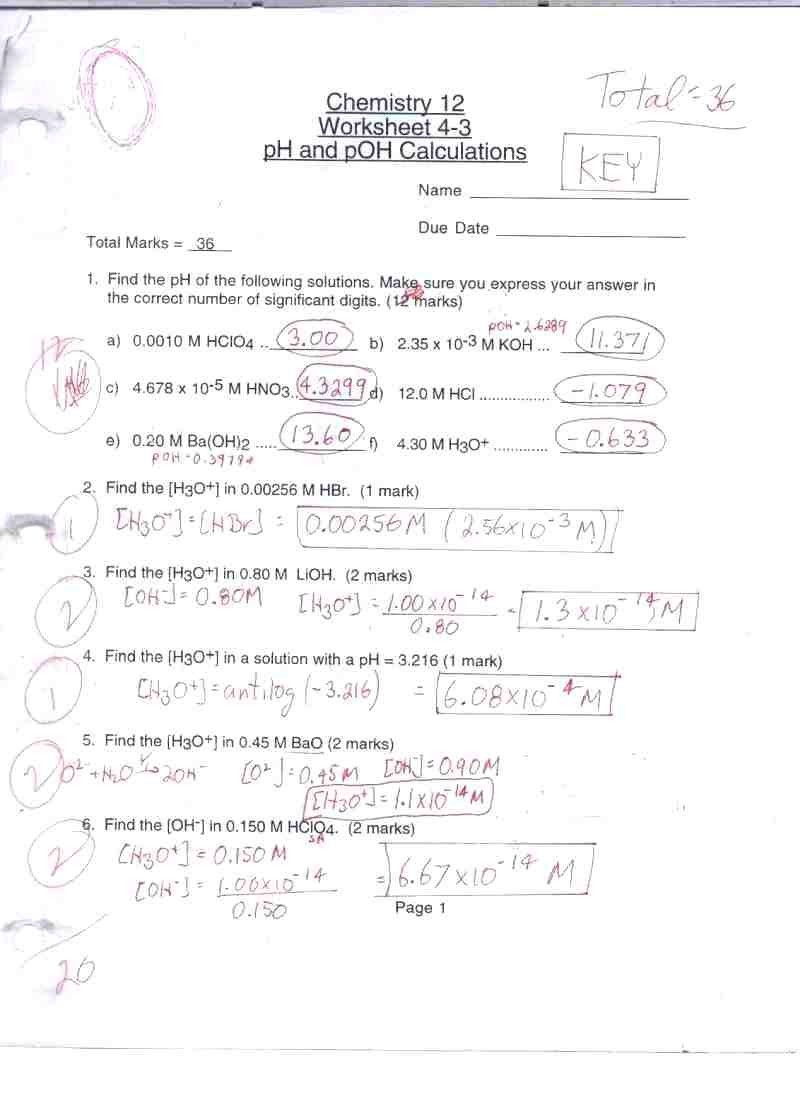 Total = 36
Chemistry 12
Worksheet 4-3
pH and pOH Calculations
KEY
Name
Due Date
Total Marks = 36
1. Find the pH of the following solutions. Make sure you express your answer in
the correct number of significant digits. (12 marks)
pOH = 2.6289
a) 0.0010 M HClO4 .. 3.00 b) 2.35 x 10-3 M KOH ... 11.371
12
c) 4.678 x 10-5 M HNO3.. 4.3299 d) 12.0 M HCl ................. -1.079
e) 0.20 M Ba(OH)2 ..... 13.60 f) 4.30 M H3O+ ............. -0.633
pOH = 0.3979
2. Find the [H3O+] in 0.00256 M HBr. (1 mark)
1 [H3O+] = [HBr] = 0.00256M (2.56x10-3 M)
3. Find the [H3O+] in 0.80 M LiOH. (2 marks)
2 [OH-] = 0.80M [H3O+] = 1.00x10-14 = 1.3x10-14 M
0.80
4. Find the [H3O+] in a solution with a pH = 3.216 (1 mark)
1 [H3O+] = antilog (-3.216) = 6.08x10-4 M
5. Find the [H3O+] in 0.45 M BaO (2 marks)
2 O2- + H2O → 2OH- [O2-] = 0.45M [OH-] = 0.90M
[H3O+] = 1.1x10-14 M
6. Find the [OH-] in 0.150 M HClO4. (2 marks)
SA
2 [H3O+] = 0.150 M
[OH-] = 1.00x10-14 = 6.67x10-14 M
0.150
Page 1
20